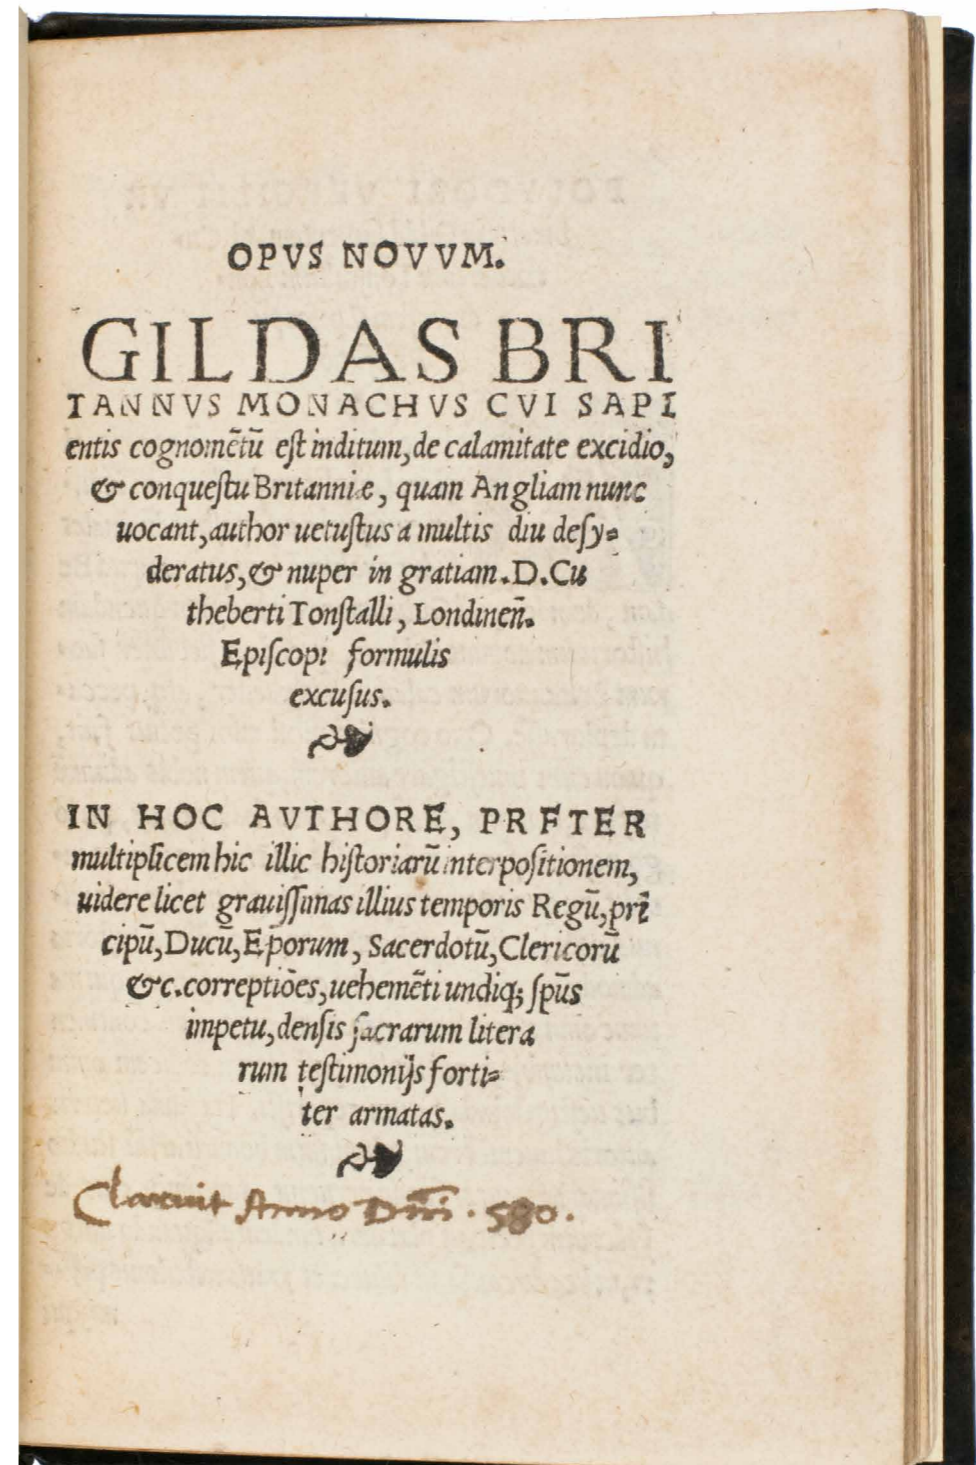 OPVS NOVVM.
GILDAS BRI
TANNVS MONACHVS CVI SAPI
entis cognomẽtũ eſt inditum, de calamitate excidio,
& conqueſtu Britanniæ, quam Angliam nunc
uocant, author uetuſtus a multis diu deſy⸗
deratus, & nuper in gratiam. D. Cu
theberti Tonſtalli, Londineñ.
Epiſcopi formulis
excuſus.
IN HOC AVTHORE, PRETER
multiplicem hic illic hiſtoriarũ interpoſitionem,
uidere licet grauiſſimas illius temporis Regũ, prĩ
cipũ, Ducũ, Ep̃orum, Sacerdotũ, Clericorũ
&c. correptiões, uehemẽti undiq; ſpũs
impetu, denſis ſacrarum litera
rum teſtimonijs forti⸗
ter armatas.
Claruit Anno Dñi . 580.